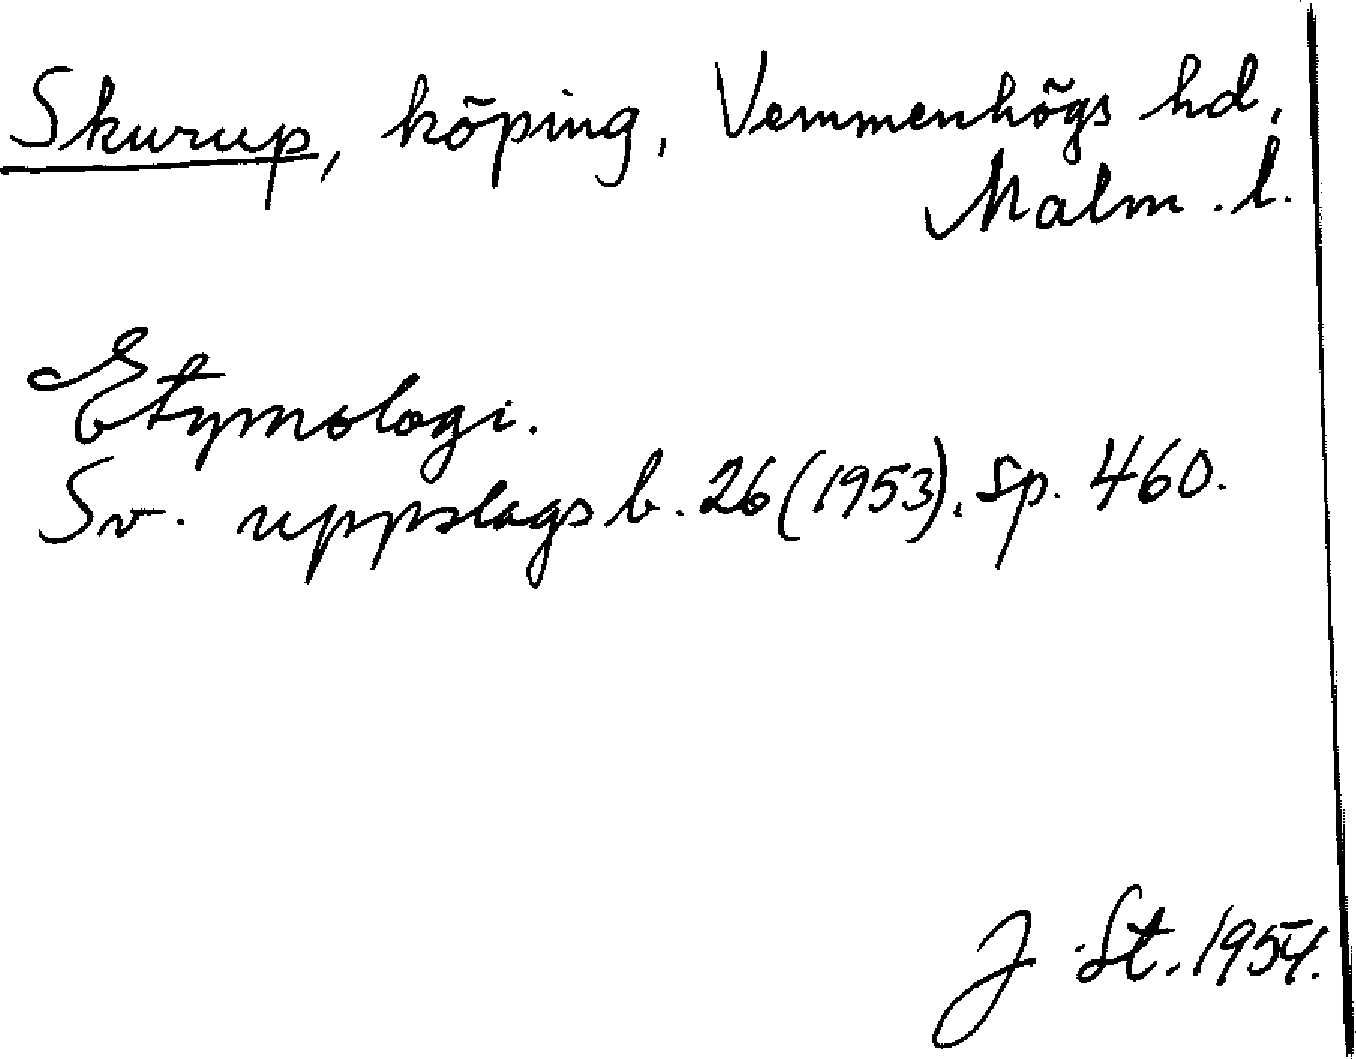 Skurup, köping, Vemmenhögs hd,
Malm. l.
Etymologi.
Sv. uppslagsb. 26 (1953), sp. 460.
J. St. 1954.